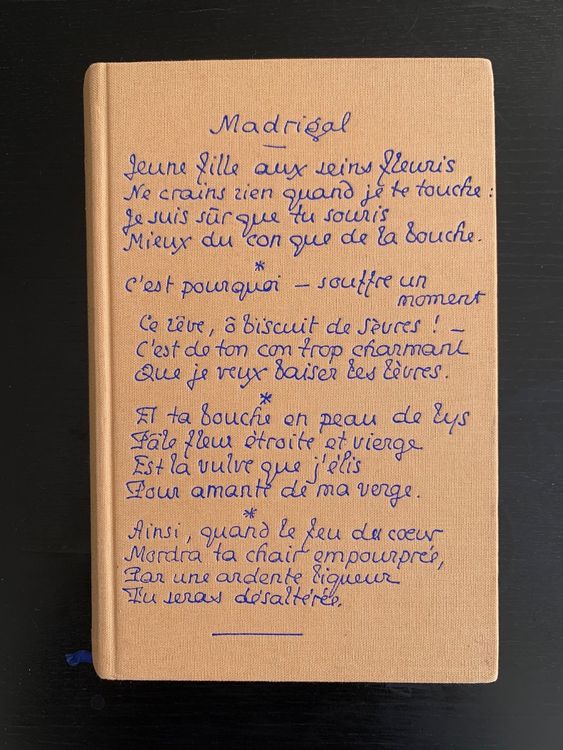 Madrigal
Jeune fille aux seins fleuris
Ne crains rien quand je te touche :
Je suis sûr que tu souris
Mieux du con que de la bouche.
*
C'est pourquoi – souffre un
moment
Ce rêve, ô biscuit de Sèvres ! –
C'est de ton con trop charmant
Que je veux baiser les lèvres.
*
Et ta bouche en peau de lys
Pâle fleur étroite et vierge
Est la vulve que j'élis
Pour amante de ma verge.
*
Ainsi, quand le feu du cœur
Mordra ta chair empourprée,
Par une ardente liqueur
Tu seras désaltérée.